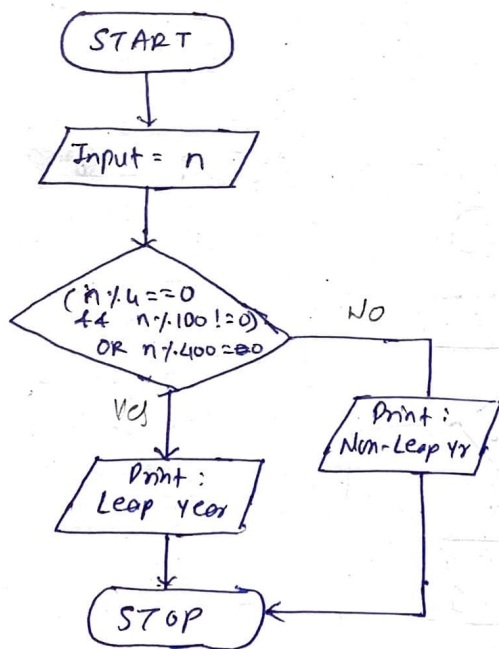 START
Input = n
(n % 4 == 0
&& n % 100 != 0)
OR n % 400 == 0
NO
Yes
Print :
Non-Leap Yr
Print :
Leap year
STOP